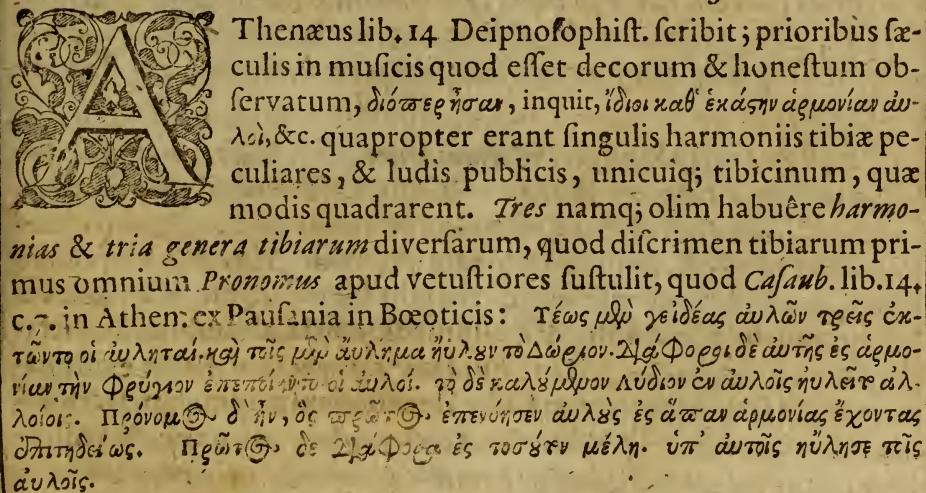 AThenæus lib. 14 Deipnoſophiſt. ſcribit; prioribus ſæ-
culis in muſicis quod eſſet decorum & honeſtum ob-
ſervatum, διόπερ ἦσαν, inquit, ἴδιοι καθ' ἑκάστην ἁρμονίαν αὐ-
λοὶ, &c. quapropter erant ſingulis harmoniis tibiæ pe-
culiares, & ludis publicis, unicuiq; tibicinum, quæ
modis quadrarent. Tres namq; olim habuêre harmo-
nias & tria genera tibiarum diverſarum, quod diſcrimen tibiarum pri-
mus omnium Pronomus apud vetuſtiores ſuſtulit, quod Caſaub. lib. 14.
c. 7. in Athen: ex Pauſania in Bœoticis: Τέως μὲν γε ἰδέας αὐλῶν τρεῖς ἐκ-
τῶντο οἱ αὐληταί. καὶ τοῖς μὲν ἄυλημα ἤυλουν τὸ Δώριον. Διάφοροι δὲ ἀυτῆς ἐς ἁρμο-
νίαν τὴν Φρύγιον ἐπεποίηντο οἱ αὐλοί. τὸ δὲ καλούμενον Λύδιον ἐν αὐλοῖς ηὐλεῖτο ἀλ-
λοίοις. Πρόνομος δ' ἦν, ὃς πρῶτος ἐπενόησεν αὐλοὺς ἐς ἅπαν ἁρμονίας ἔχοντας
ἐπιτηδείως. Πρῶτος δὲ Διάφορα ἐς τοσοῦτον μέλη. ὑπ' ἀυτοῖς ηὔλησε τοῖς
αὐλοῖς.